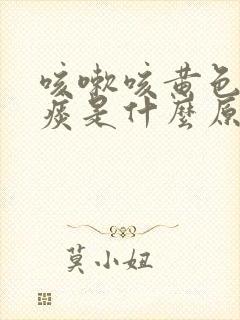 咳嗽咳黄色
痰是什麼原
莫小妞